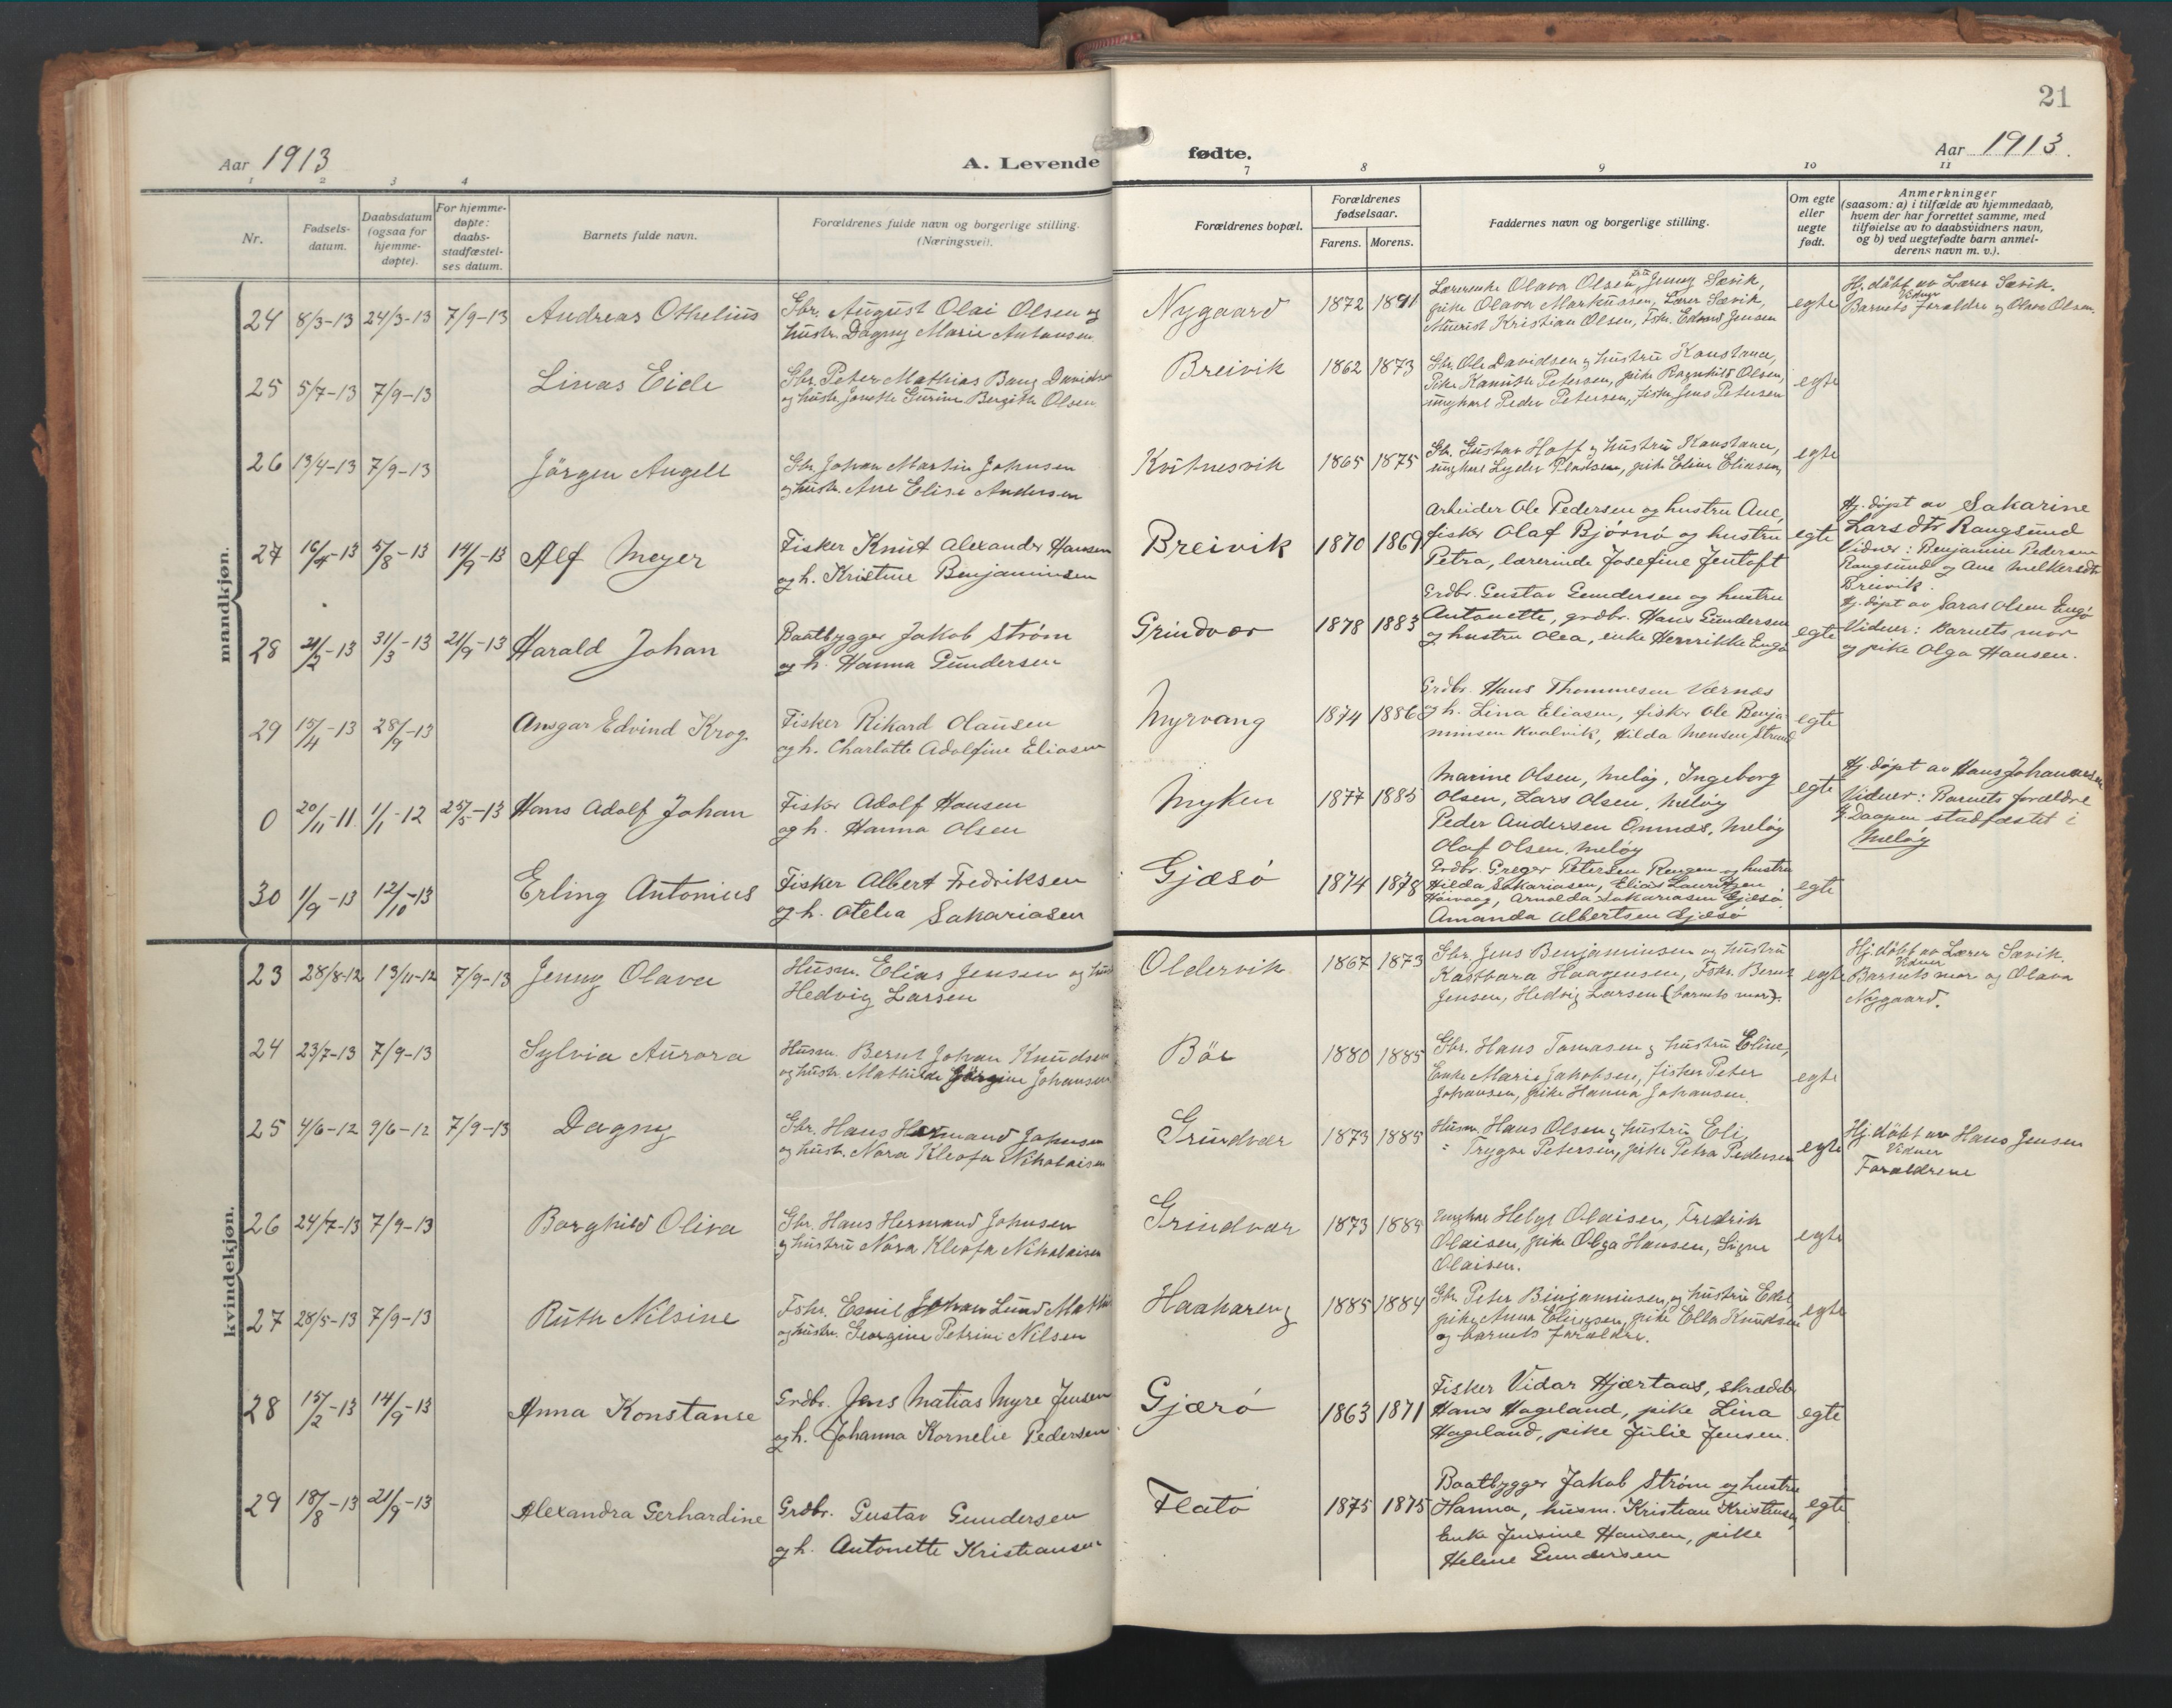 21
Aar 1913
A. Levende fødte.
Aar 1913.
1 2 3 4 7 8 9 10 11
Nr.
Fødsels-
datum.
Daabsdatum
(ogsaa for
hjemme-
døpte).
For hjemme-
døpte:
daabs-
stadfæstel-
ses datum.
Barnets fulde navn.
Forældrenes fulde navn og borgerlige stilling.
(Næringsvei).
Forældrenes bopæl.
Forældrenes
fødselsaar.
Farens. Morens.
Faddernes navn og borgerlige stilling.
Om egte
eller
uegte
født.
Anmerkninger
(saasom: a) i tilfælde av hjemmedaab,
hvem der har forrettet samme, med
tilføielse av to daabsvidners navn,
og b) ved uegtefødte barn anmel-
derens navn m. v.).
mandkjøn.
24 8/3-13 24/3-13 7/9-13 Andreas Othelius
Gbr. August Olai Olsen og
hustr. Dagny Marie Antonsen
Nygaard 1872 1891
Olava Olsen, Jenny Sævik,
pike Olava Markussen, Lærer Sævik,
Kristian Olsen, Fskr. Edvard Jensen
egte
Hj. döbt av Lærer Sævik.
Vidner
Barnets forældre og Olava Olsen.
25 5/7-13 7/9-13 Linas Eide
Gbr. Peter Mathias Bang Davids
og hustr. Jonette Gurine Bergitte Olsen
Breivik 1862 1873
Gbr. Ole Davidsen og hustru Konstance,
Pike Kamilla Petersen, pike Ragnhild Olsen,
ungkarl Peder Petersen, fisker Jens Petersen
egte
26 13/4-13 7/9-13 Jörgen Angell
Gbr. Johan Martin Johnsen
og hustr. Ane Elise Andersen
Kvitnesvik 1865 1875
Gbr. Gustav Hoff og hustru Konstance,
ungkarl Lyder, pike Eline Eliasen
egte
27 16/4-13 5/8-13 14/9-13 Alf Meyer
Fisker Knut Alexander Hansen
og h. Kristine Benjaminsen
Breivik 1870 1869
Arbeider Ole Pedersen og hustru Ane,
fisker Olaf Bjørnø og hustru
Petra, lærerinde Josefine Jentoft
egte
Hj. døpt av Sakarine
Larsdtr Rangsund
Vidner: Benjamin Pedersen
Rangsund og Ane Melkersdtr
Breivik.
28 21/2-13 31/3-13 21/9-13 Harald Johan
Baatbygger Jakob Strøm
og h. Hanna Gundersen
Grindvær 1878 1883
Grdbr. Gustav Gundersen og hustru
Antonette, grdbr. Hans Gundersen
og hustru Olea, enke Henrikke Engø
egte
Hj. døpt av Saras Olsen Engø
Vidner: Barnets mor
og pike Olga Hansen.
29 15/4-13 28/9-13 Ansgar Edvind Krog.
Fisker Rikard Olausen
og h. Charlotte Adolfine Eliasen
Myrvang 1874 1886
Grdbr. Hans Thommesen Værnes
og h. Lina Eliasen, fisker Ole Benja-
minsen Kvalvik, Hilda Mensen Strand
egte
0 20/11-11. 1/1-12 25/5-13 Hans Adolf Johan
Fisker Adolf Hansen
og h. Hanna Olsen
Myken 1877 1885
Marine Olsen, Meløy, Ingeborg
Olsen, Lars Olsen, Meløy
Peder Andersen Ornnæs, Meløy
Olaf Olsen, Meløy
egte
Hj. døpt av Hans Johannessen
Vidner: Barnets forældre
Daapen stadfæstet i
Meløy
30 1/9-13 12/10-13 Erling Antonius
Fisker Albert Fredriksen
og h. Otelia Sakariasen
Gjæsø 1874 1878
Grdbr. Greger Petersen Rengen og hustru
Hilda Sakariasen, Elias Lauritzen
Arnolda Sakariasen Gjæsø
Amanda Albertsen Gjæsø
egte
kvindekjøn.
23 28/8-12 13/11-12 7/9-13 Jenny Olava
Husm. Elias Jensen og hust
Hedvig Larsen
Oldervik 1867 1873
Gbr. Jens Benjaminsen og hustru
Kastbara Haagensen, Fskr. Bernt
Jensen, Hedvig Larsen (barnets mor).
egte
Hj. döbt av Lærer Sævik.
Vidner
Barnets mor og Olava
Nygaard.
24 23/7-13 7/9-13 Sylvia Aurora
Husm. Bernt Johan Knudsen
og hustr. Mathilde Jörgine Johansen
Bör 1880 1885
Gbr. Hans Tomasen og hustru Eline,
Enke Marie Jakobsen, fisker Peter
Johansen, pike Hanna Johansen.
egte
25 4/6-12 9/6-12 7/9-13 Dagny
Gbr. Hans Hermand Johnsen
og hustr. Nora Kleofa Nikolaisen
Grindvær 1873 1885
Husm. Hans Olsen og hustru Eli,
" Trygve Petersen, pike Petra Pedersen
egte
Hj. döbt av Hans Jensen
Vidner
Forældrene
26 24/7-13 7/9-13 Borghild Oliva
Gbr. Hans Hermand Johnsen
og hustru Nora Kleofa Nikolaisen
Grindvær 1873 1884
Ungkar Helge Olaisen, Fredrik
Olaisen, pike Olga Hansen, Signe
Olaisen.
egte
27 28/5-13 7/9-13 Ruth Nilsine
Fskr. Emil Johan Lund Mathi
og hustr. Georgine Petrine Nilsen
Haakareng 1885 1884
Gbr. Peter Binjaminsen og hustru Edel,
pike Anna Elingsen, pike Ella Knudsen
og barnets forældre.
egte
28 15/2-13 14/9-13 Anna Konstanse
Grdbr. Jens Matias Myre Jensen
og h. Johanna Kornelie Pedersen
Gjærø 1863 1871
Fisker Vidar Hjærtaas, skrædder
Hans Hageland, pike Lina
Hageland, pike Julie Jensen.
egte
29 18/8-13 21/9-13 Alexandra Gerhardine
Grdbr. Gustav Gundersen
og h. Antonette Kristiansen
Flatø 1875 1875
Baatbygger Jakob Strøm og hustru
Hanna, husm. Kristian Kristensen
Enke Jensine Hansen, pike
Helene Gundersen
egte